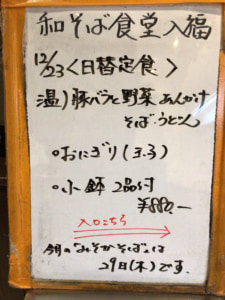 和そば食堂 入福
12/23〈日替定食〉
温)豚バラと野菜あんかけ
そば・うどん
○おにぎり(ユカリ)
○小鉢 2品付
¥880.―
入口こちら
今月の「みそかそば」は
29日(木)です.